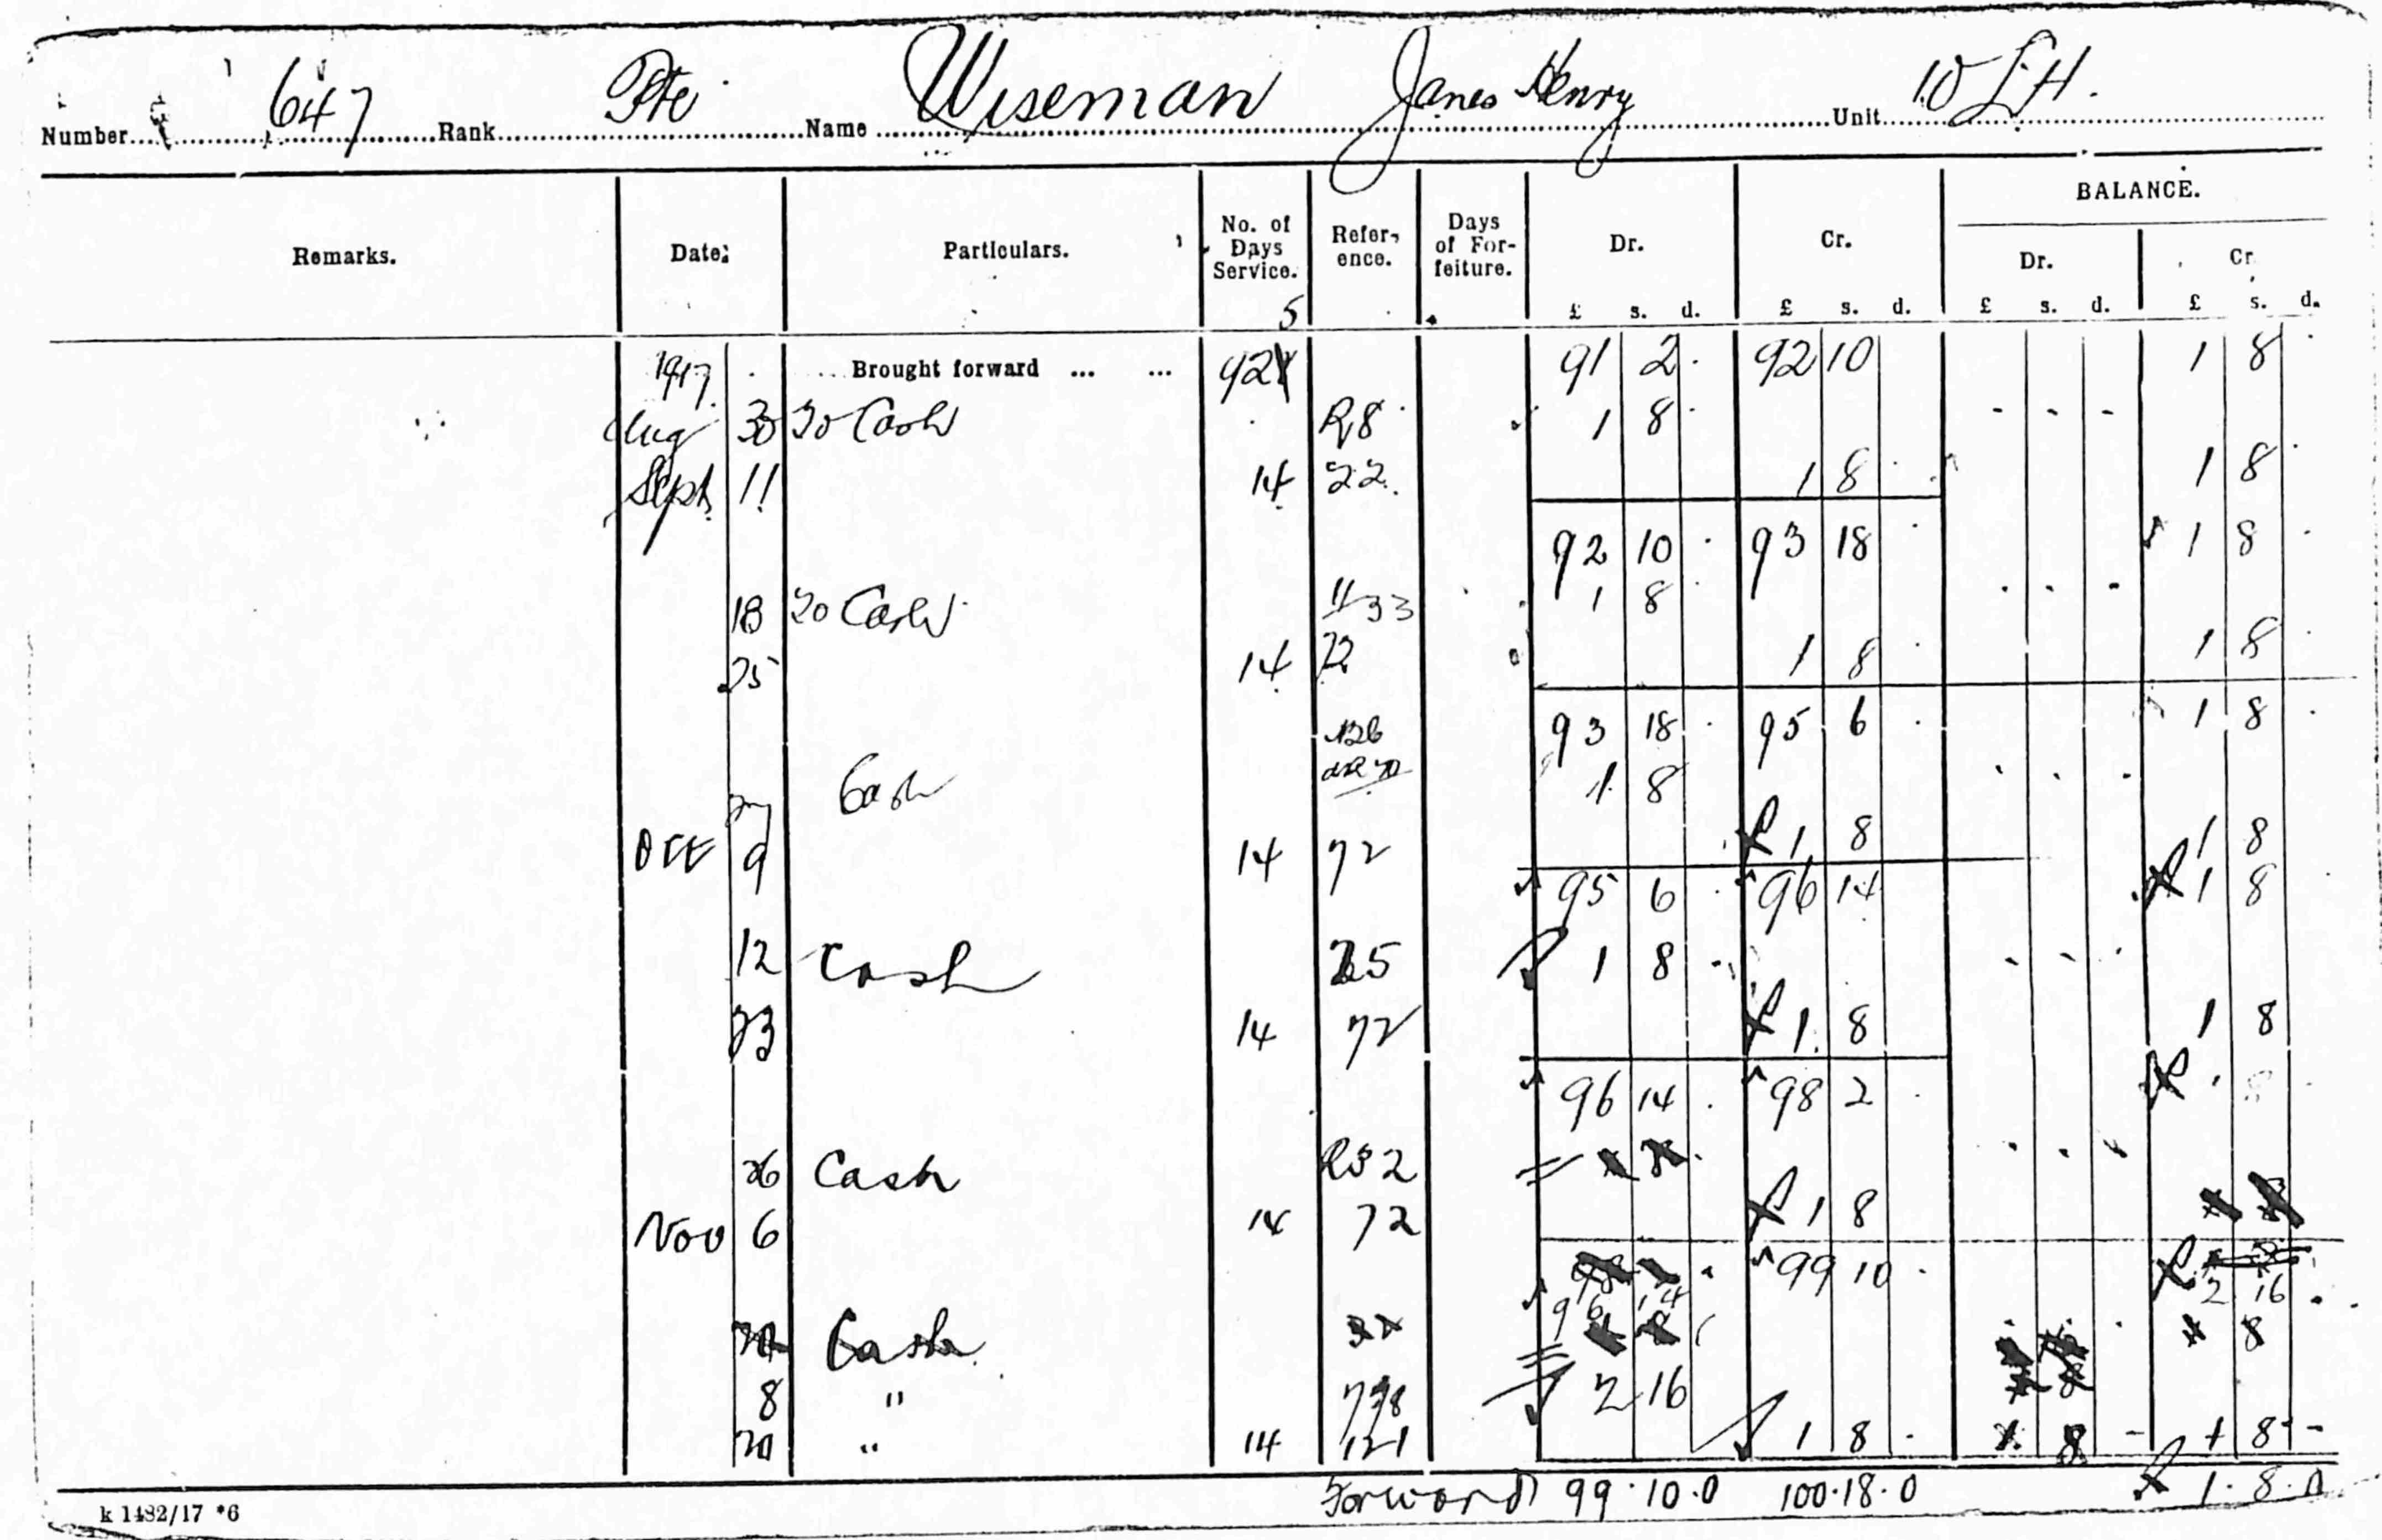 Number 647 Rank Pte Name Wiseman James Henry Unit 10 L.H.
BALANCE.
Remarks. Date. Particulars. No. of Days Service. Reference. Days of Forfeiture. Dr. Cr. Dr. Cr.
£ s. d. £ s. d. £ s. d. £ s. d.
5
1917 Brought forward ... ... 92 91 2 92 10 1 8
Aug 30 Cash R8 1 8 - - -
Sept 11 14 22. 1 8 1 8
92 10 93 18 1 8
18 Cash 11/33 1 8
25 14 1 8 1 8
93 18 95 6 1 8
27 Cash 1 8
Oct 9 14 72 1 8 1 8
95 6 96 14 1 8
12 Cash 1 8
23 14 72 1 8 1 8
96 14 98 2
26 Cash R32
Nov 6 14 72 1 8
99 10
96 14 2 16
Cash 8
8 " 2 16
20 " 14 121 1 8 8 - 1 8 -
Forward 99.10.0 100.18.0 1.8.0
k 1482/17 *6